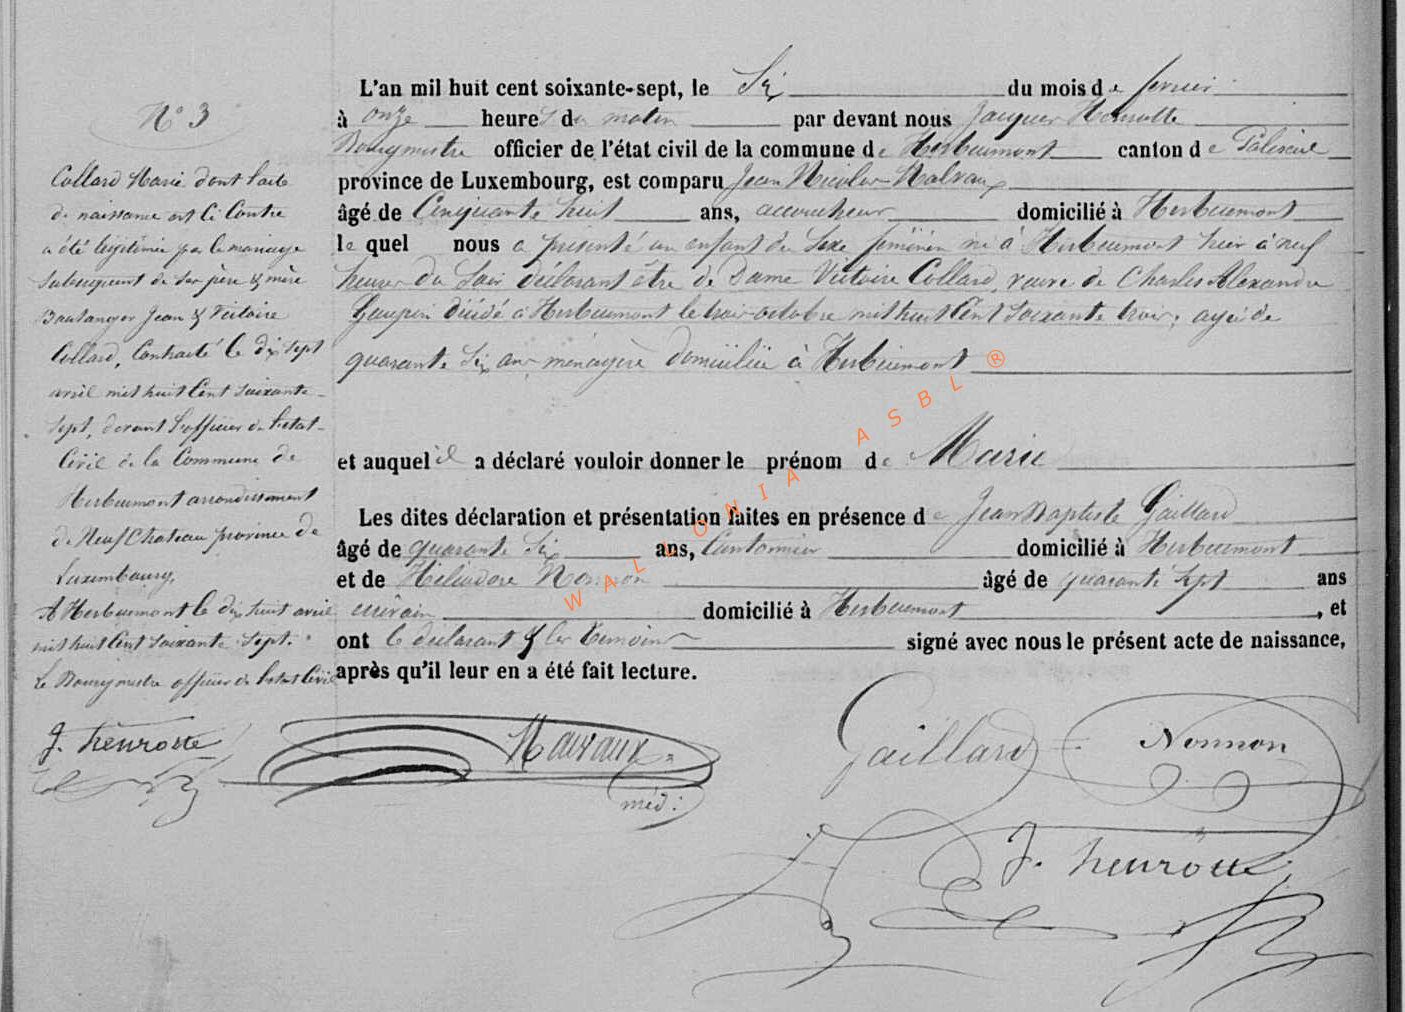 N° 3
Collard Marie dont l'acte
de naissance est ci contre
a été légitimée par le mariage
subséquent de ses père & mère
Boulanger Jean & Victoire
Collard, Contracté le dix sept
avril mil huit Cent soixante-
sept, devant l'officier de l'état-
Civil de la Commune de
Herbeumont arrondissement
de Neuf Chateau province de
Luxembourg,
A Herbeumont le dix huit avril
mil huit Cent soixante sept.
Le Bourgmestre officier de l'état Civil
J. henrotte
L'an mil huit cent soixante-sept, le Six du mois de fevrier
à onze heures du matin par devant nous Jacques Henrotte
Bourgmestre officier de l'état civil de la commune de Herbeumont canton de Paliseul
province de Luxembourg, est comparu Jean Nicolas
âgé de Cinquante huit ans, accoucheur domicilié à Herbeumont
le quel nous a présenté un enfant du Sexe féminin né à Herbeumont hier à neuf
heures du Soir déclarant être de Dame Victoire Collard, veuve de Charles Alexandre
décédé à Herbeumont le trois octobre mil huit Cent soixante trois, agée de
quarante Six ans ménagère domiciliée à Herbeumont
et auquel il a déclaré vouloir donner le prénom de Marie
Les dites déclaration et présentation faites en présence de Jean Baptiste Gaillard
âgé de quarante Six ans, Cantonnier domicilié à Herbeumont
et de Héliodore Nonnon âgé de quarante sept ans
domicilié à Herbeumont, et
ont le déclarant & les témoins signé avec nous le présent acte de naissance,
après qu'il leur en a été fait lecture.
Gaillard Nonnon
méd:
J. henrotte
WALLONIA ASBL ®